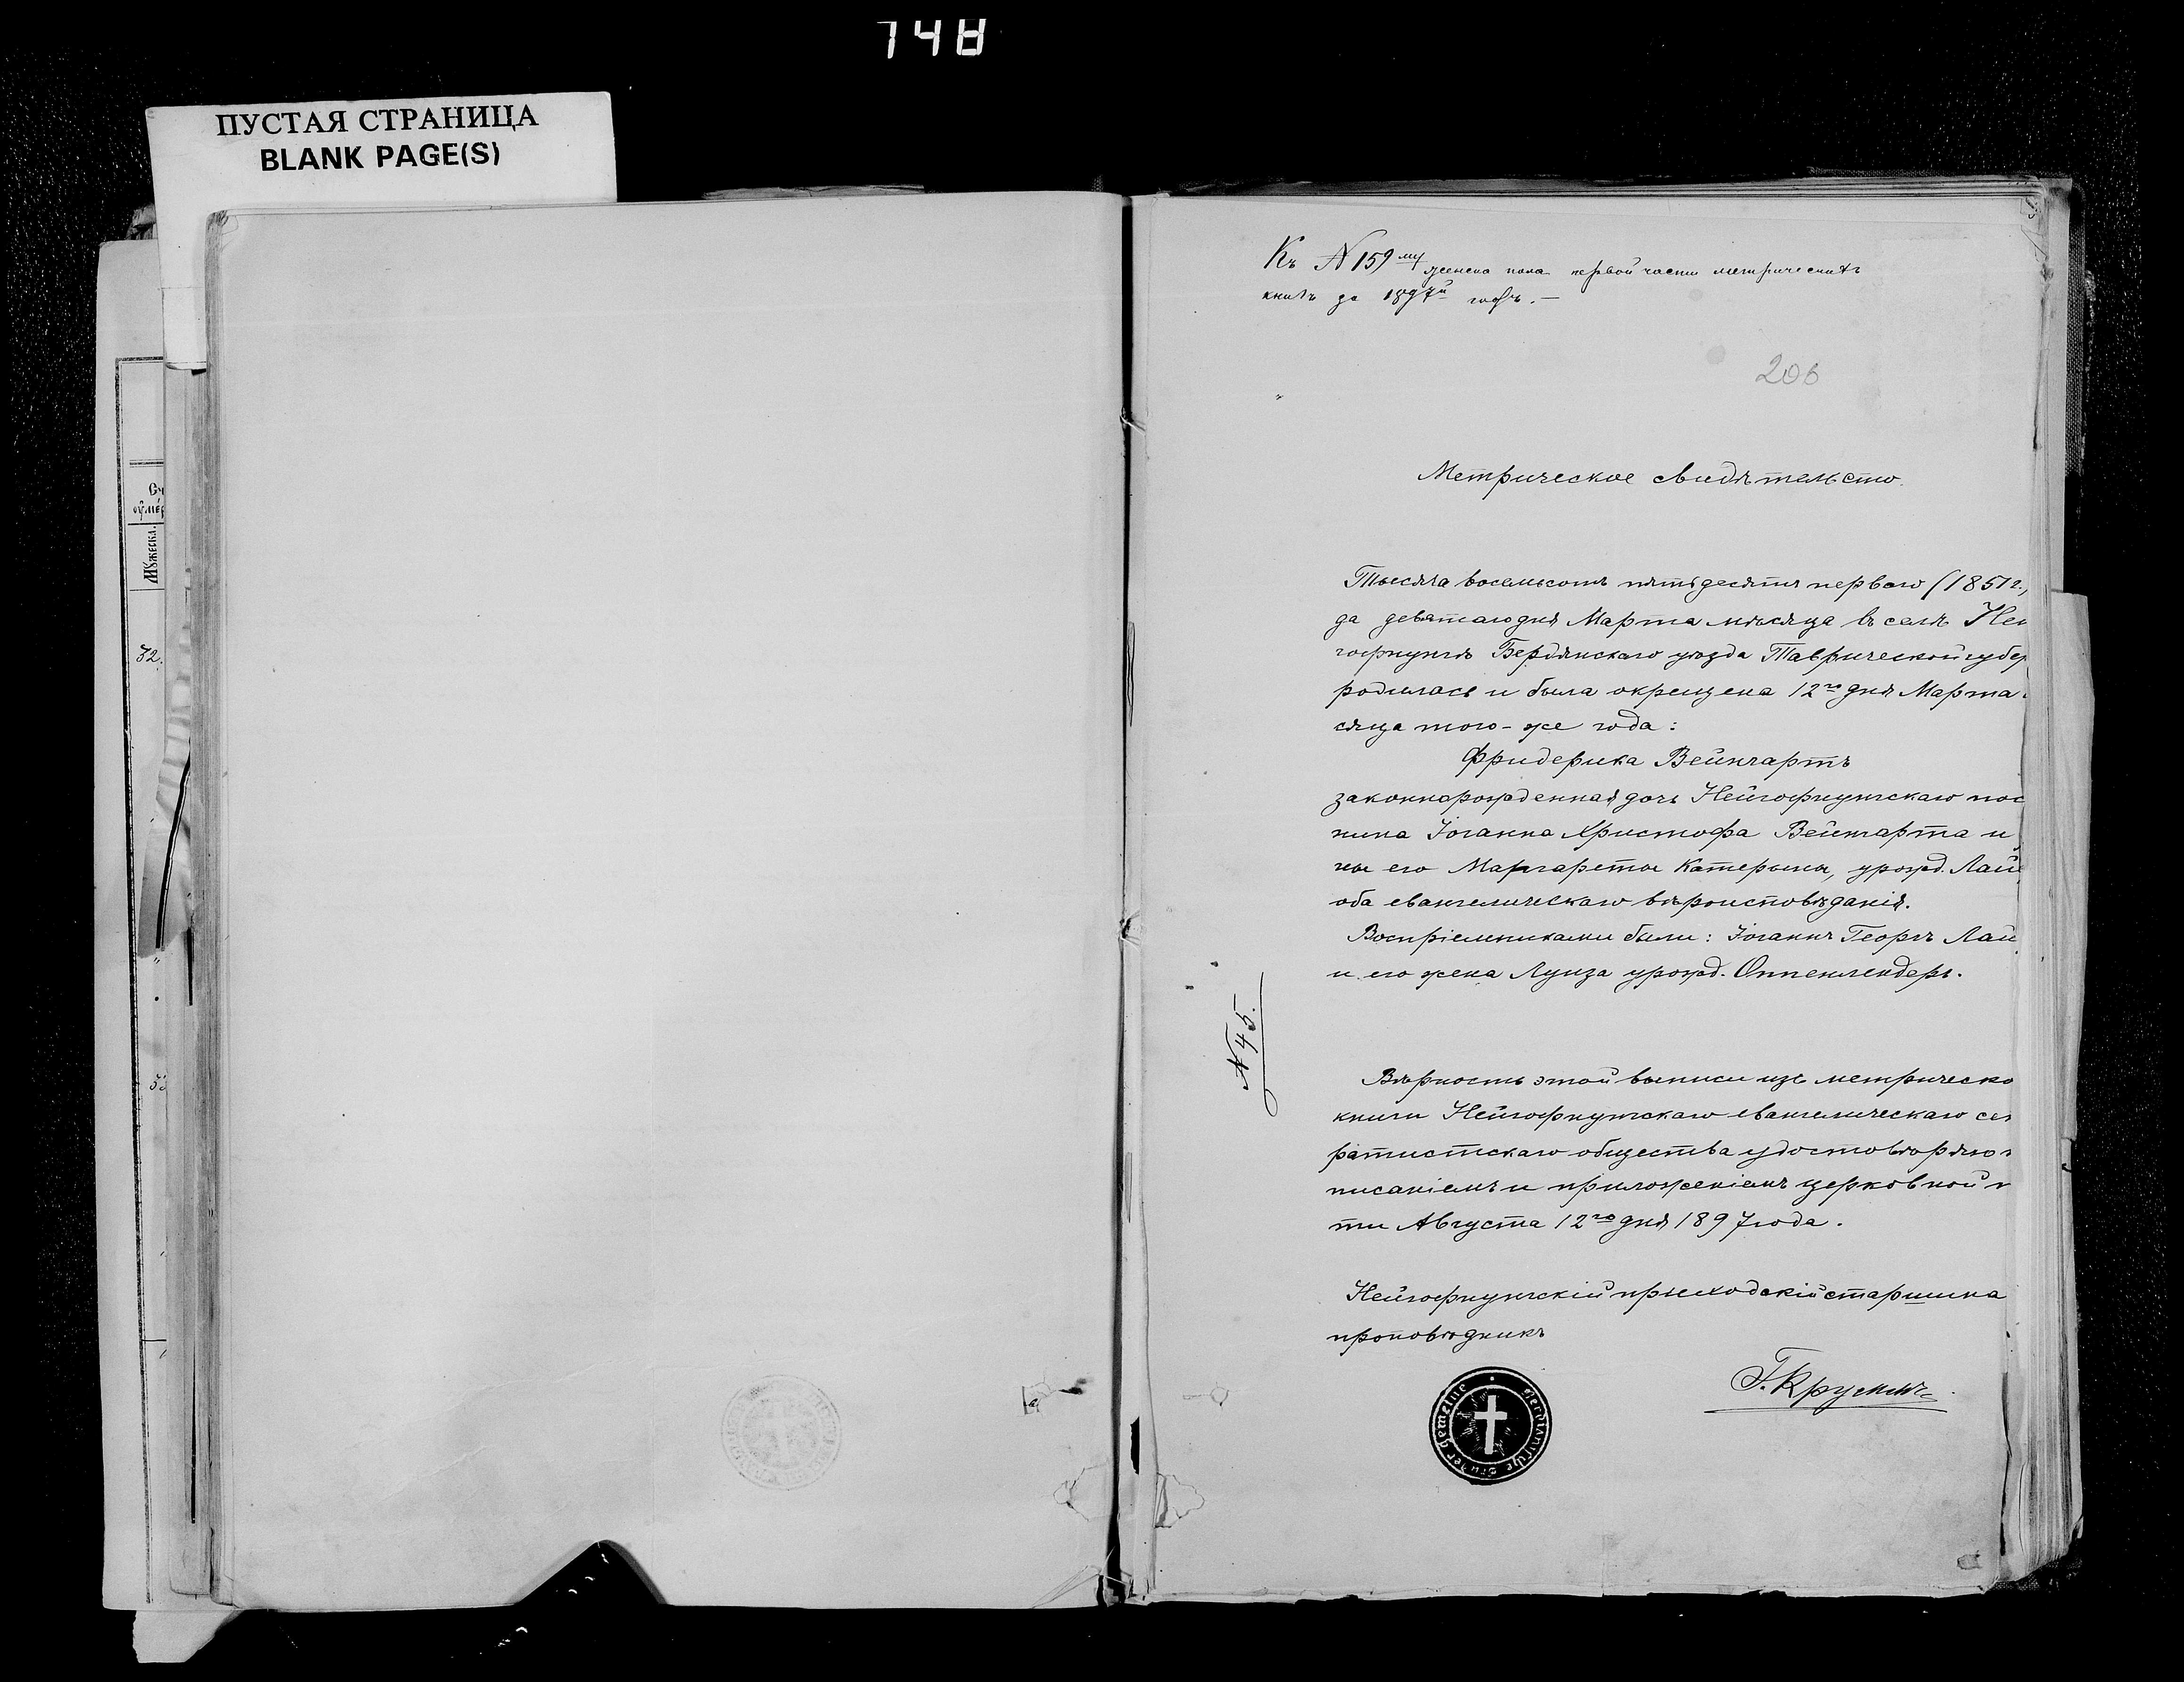 748
ПУСТАЯ СТРАНИЦА
BLANK PAGE(S)
Мужескл.
32.
Къ N 159му женска пола первой части метрическихъ
книгъ за 1897й годъ.—
206
Метрическое свидѣтельство.
Тысяча восемьсотъ пятьдесятъ перваго (1851 г.,
да девятаго дня Марта мѣсяца въ селѣ Ней
гофнунгѣ Бердянскаго уѣзда Таврической губер
родилась и была окрещена 12го дня Марта
сяца того-же года:
Фридерика Вейнгартъ
законнорожденная дочь Нейгофнунгскаго пос
нина Іоганна Христофа Вейнгарта и
ны его Маргареты Катерины, урожд. Лай
оба евангелическаго вѣроисповѣданія.
Воспріемниками были: Іоганнъ Георгъ Лай
и его жена Луиза урожд. Оппенлендеръ.
N 45.
Вѣрность этой выписи изъ метрическо
книги Нейгофнунгскаго евангелическаго се
ратистскаго общества удостовѣряю
писаніемъ и приложеніемъ церковной п
ти Августа 12го дня 1897 года.
Нейгофнунгскій приходскій старшина
проповѣдникъ
Berdianische Bruder Gemeine